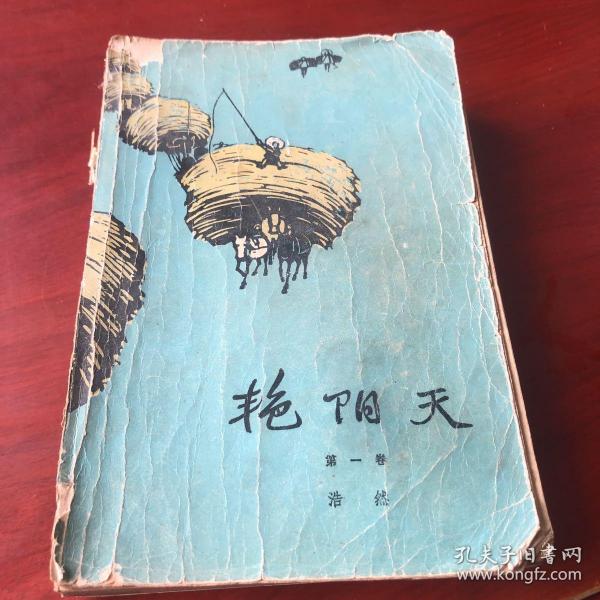 艳阳天
第一卷
浩然
孔夫子旧書网
www.kongfz.com